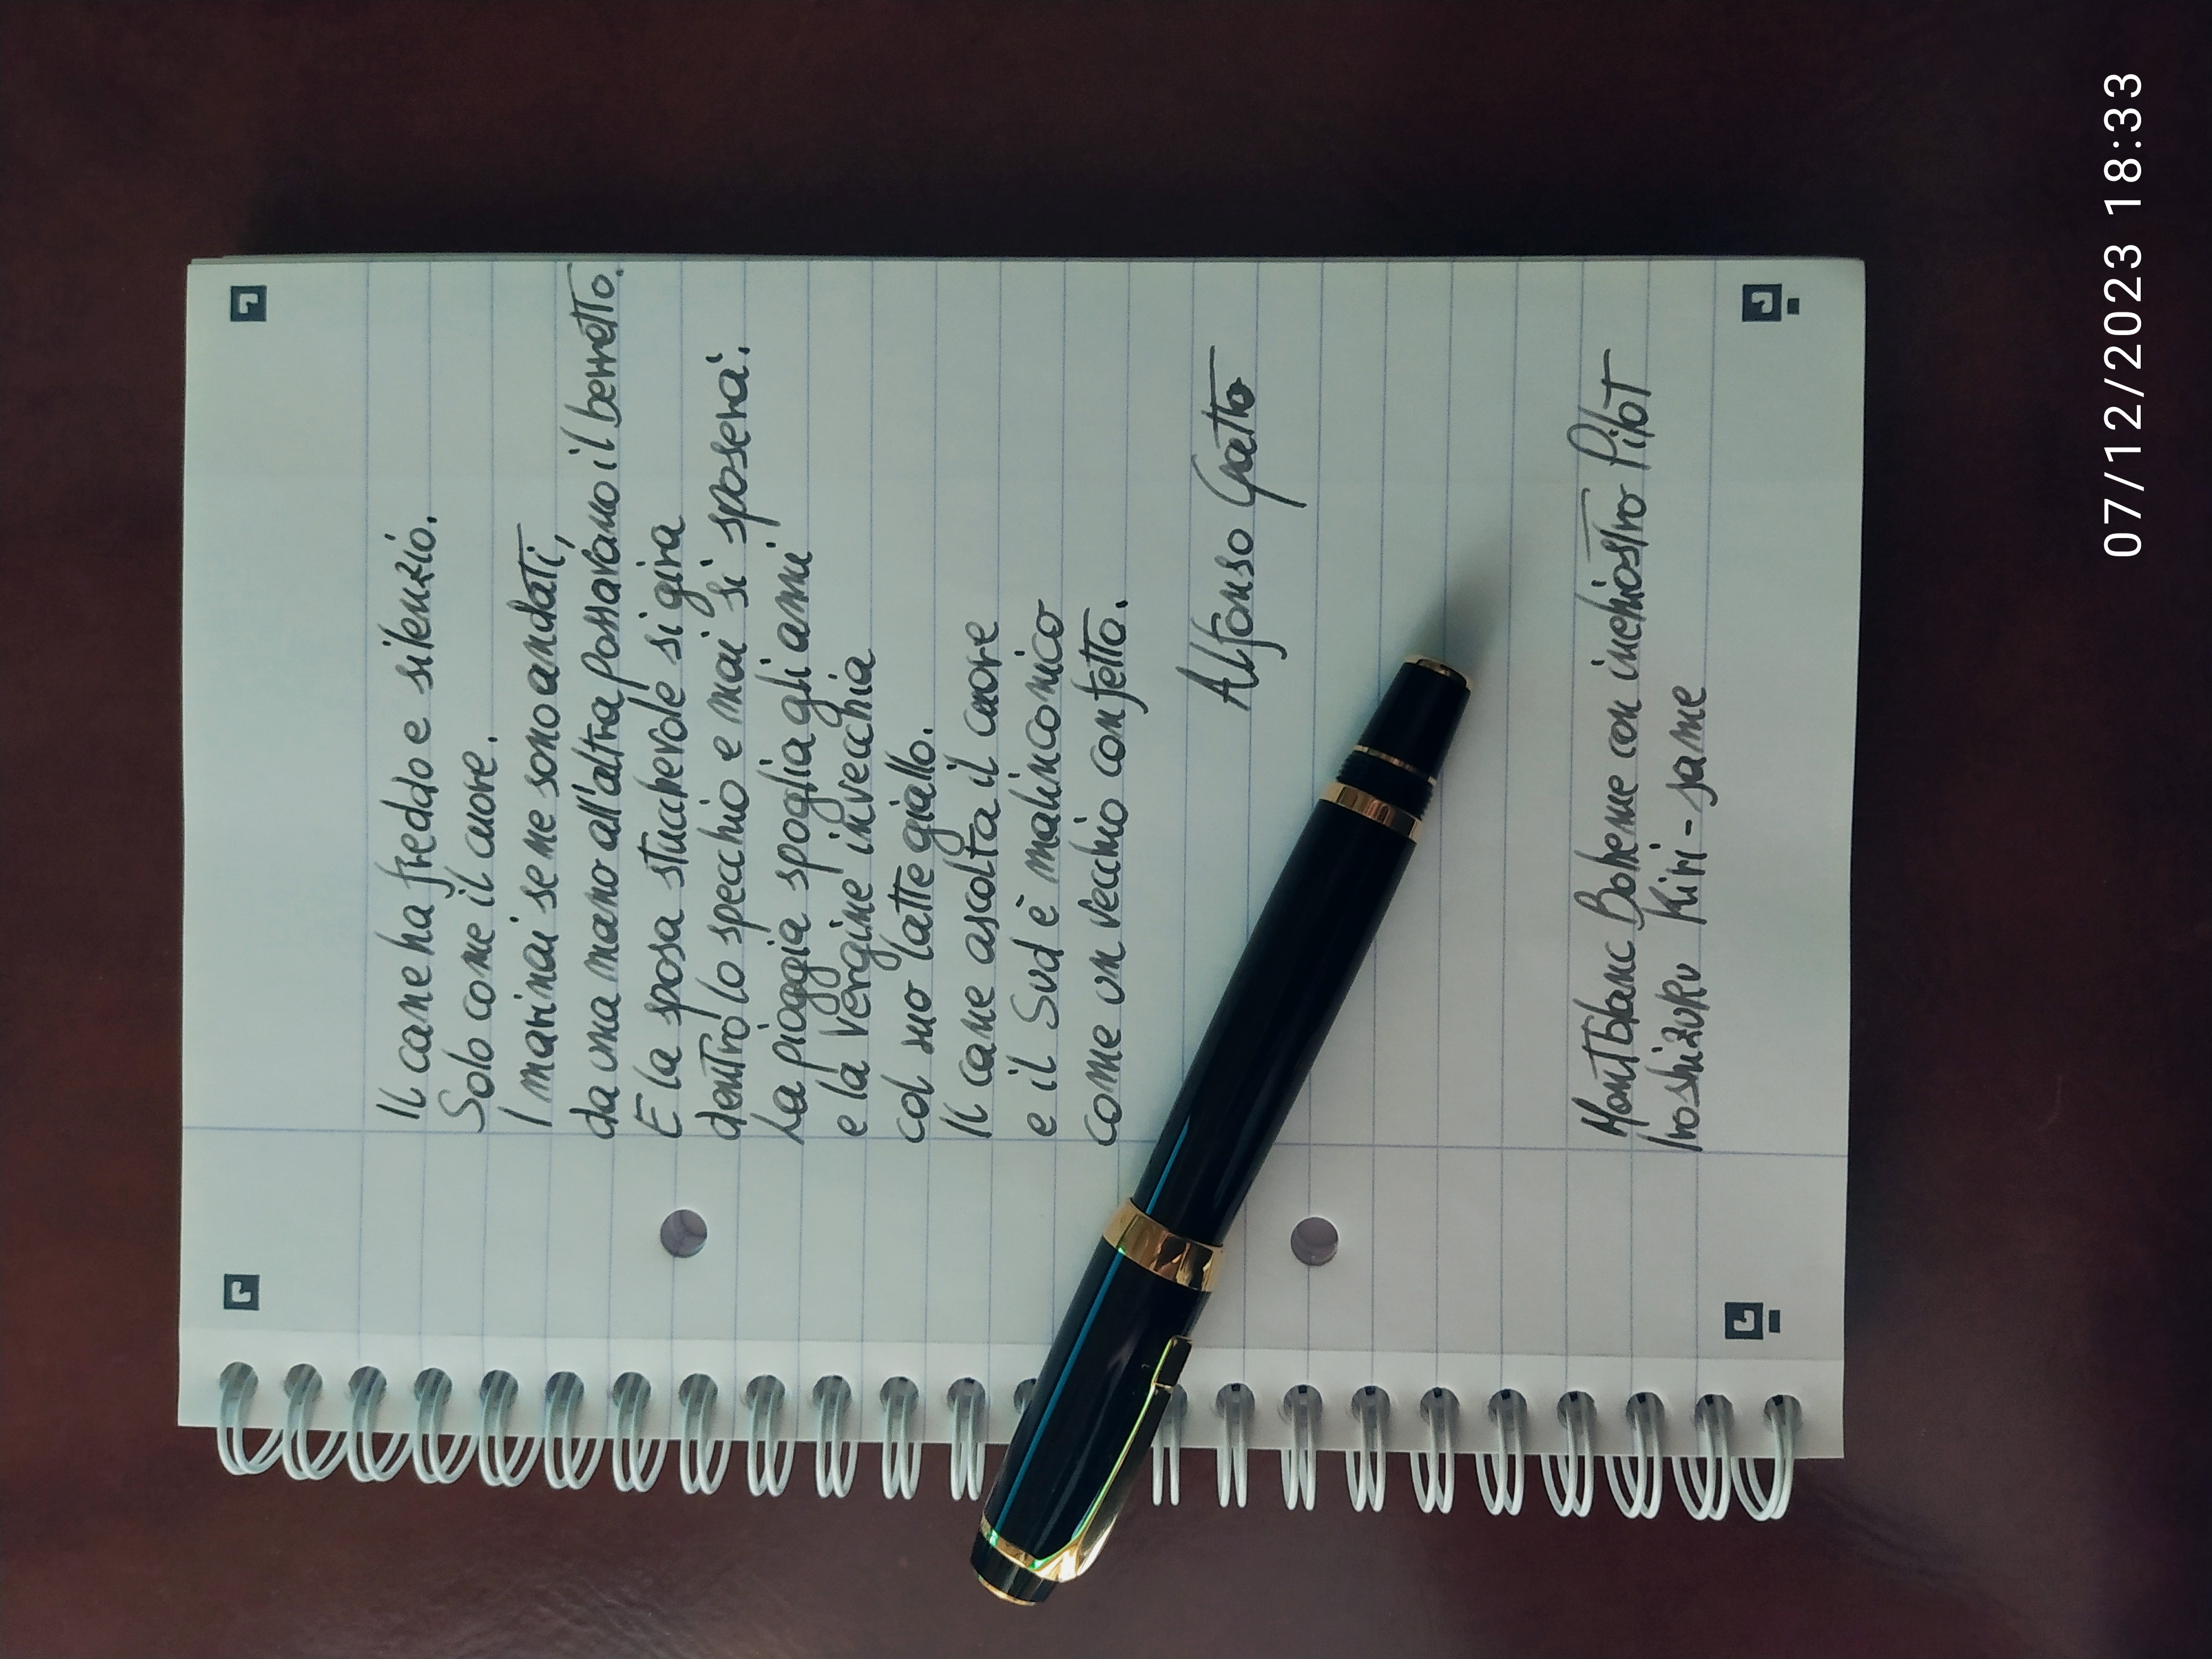 Il cane ha freddo e silenzio.
Solo come il cuore.
I marinai se ne sono andati,
da una mano all'altra passavano il berretto.
E la sposa stucchevole si gira
dentro lo specchio e mai si sposerà.
La pioggia spoglia gli anni
e la Vergine invecchia
col suo latte giallo.
Il cane ascolta il cuore
e il Sud è malinconico
come un vecchio confetto.
Alfonso Gatto
Montblanc Boheme con inchiostro Pilot
Iroshizuku Kiri-same
07/12/2023 18:33